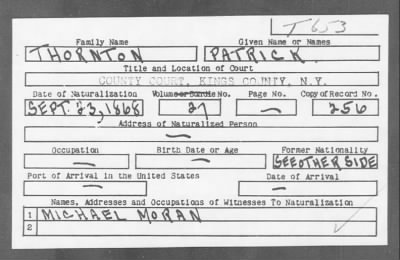 T653
Family Name Given Name or Names
THORNTON PATRICK
Title and Location of Court
COUNTY COURT, KINGS COUNTY, N.Y.
Date of Naturalization Volume or Bundle No. Page No. Copy of Record No.
SEPT. 23, 1868 27 — 256
Address of Naturalized Person
—
Occupation Birth Date or Age Former Nationality
— — SEE OTHER SIDE
Port of Arrival in the United States Date of Arrival
— —
Names, Addresses and Occupations of Witnesses To Naturalization
1 MICHAEL MORAN
2